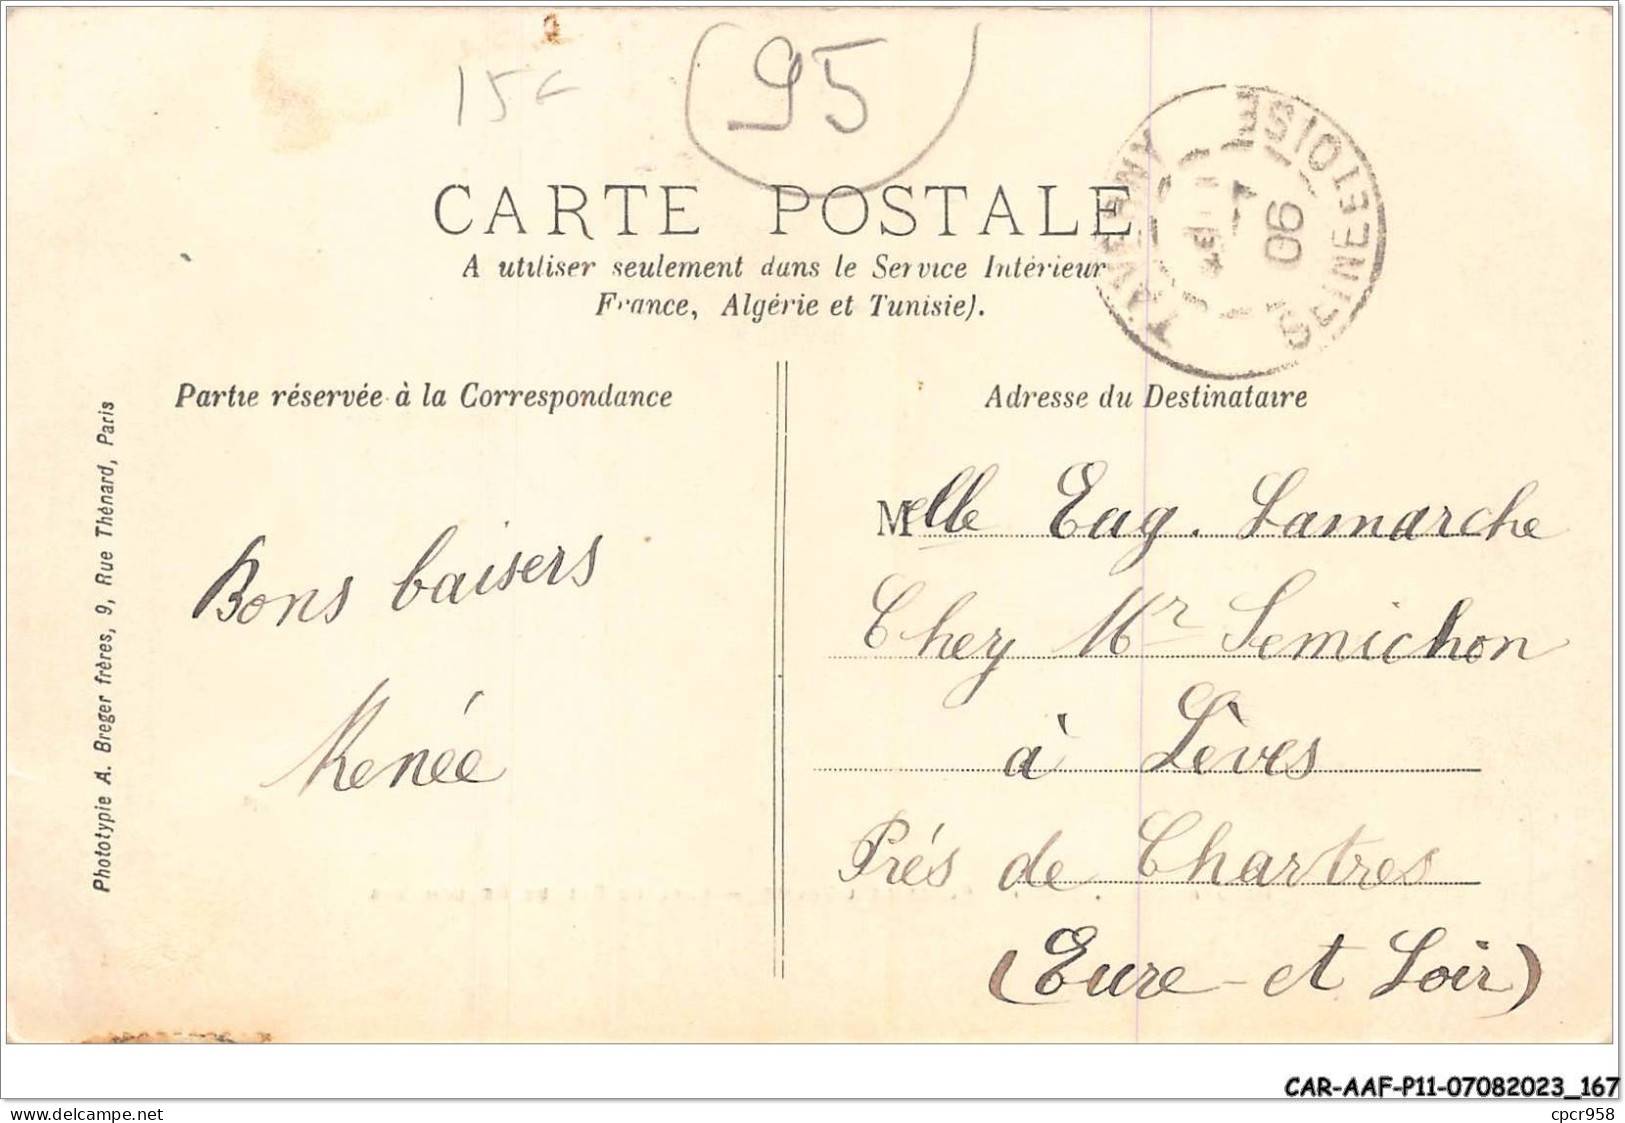 15c
95
CARTE POSTALE
A utiliser seulement dans le Service Intérieur
France, Algérie et Tunisie).
SEINE-ET-OISE
TAVERNY
06
Partie réservée à la Correspondance
Adresse du Destinataire
Bons baisers
Renée
Melle Eug. Lamarche
Chez Mr Semichon
à Lèves
Prés de Chartres
(Eure-et Loir)
Phototypie A. Breger frères, 9, Rue Thénard, Paris
CAR-AAF-P11-07082023_167
cpcr958